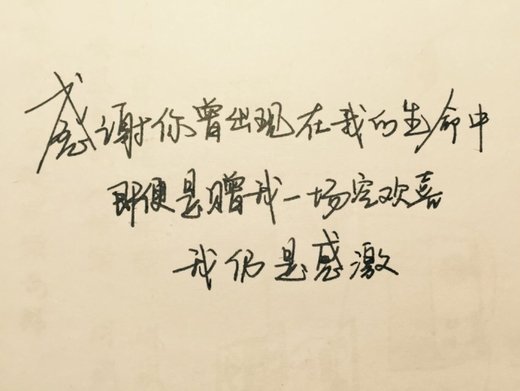 感谢你曾出现在我的生命中
即便是赠我一场空欢喜
我仍是感激